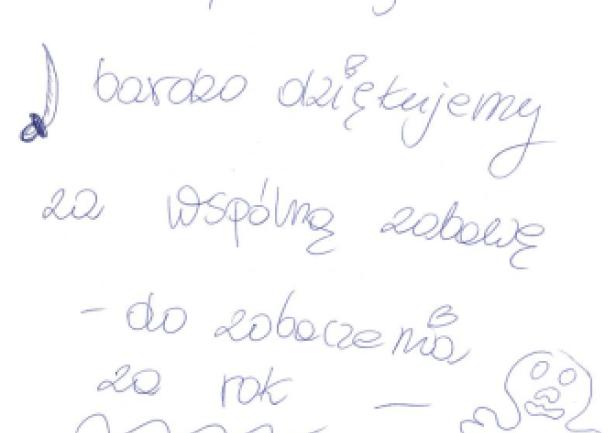 bardzo dziękujemy
za wspólną zabawę
- do zobaczenia
za rok -